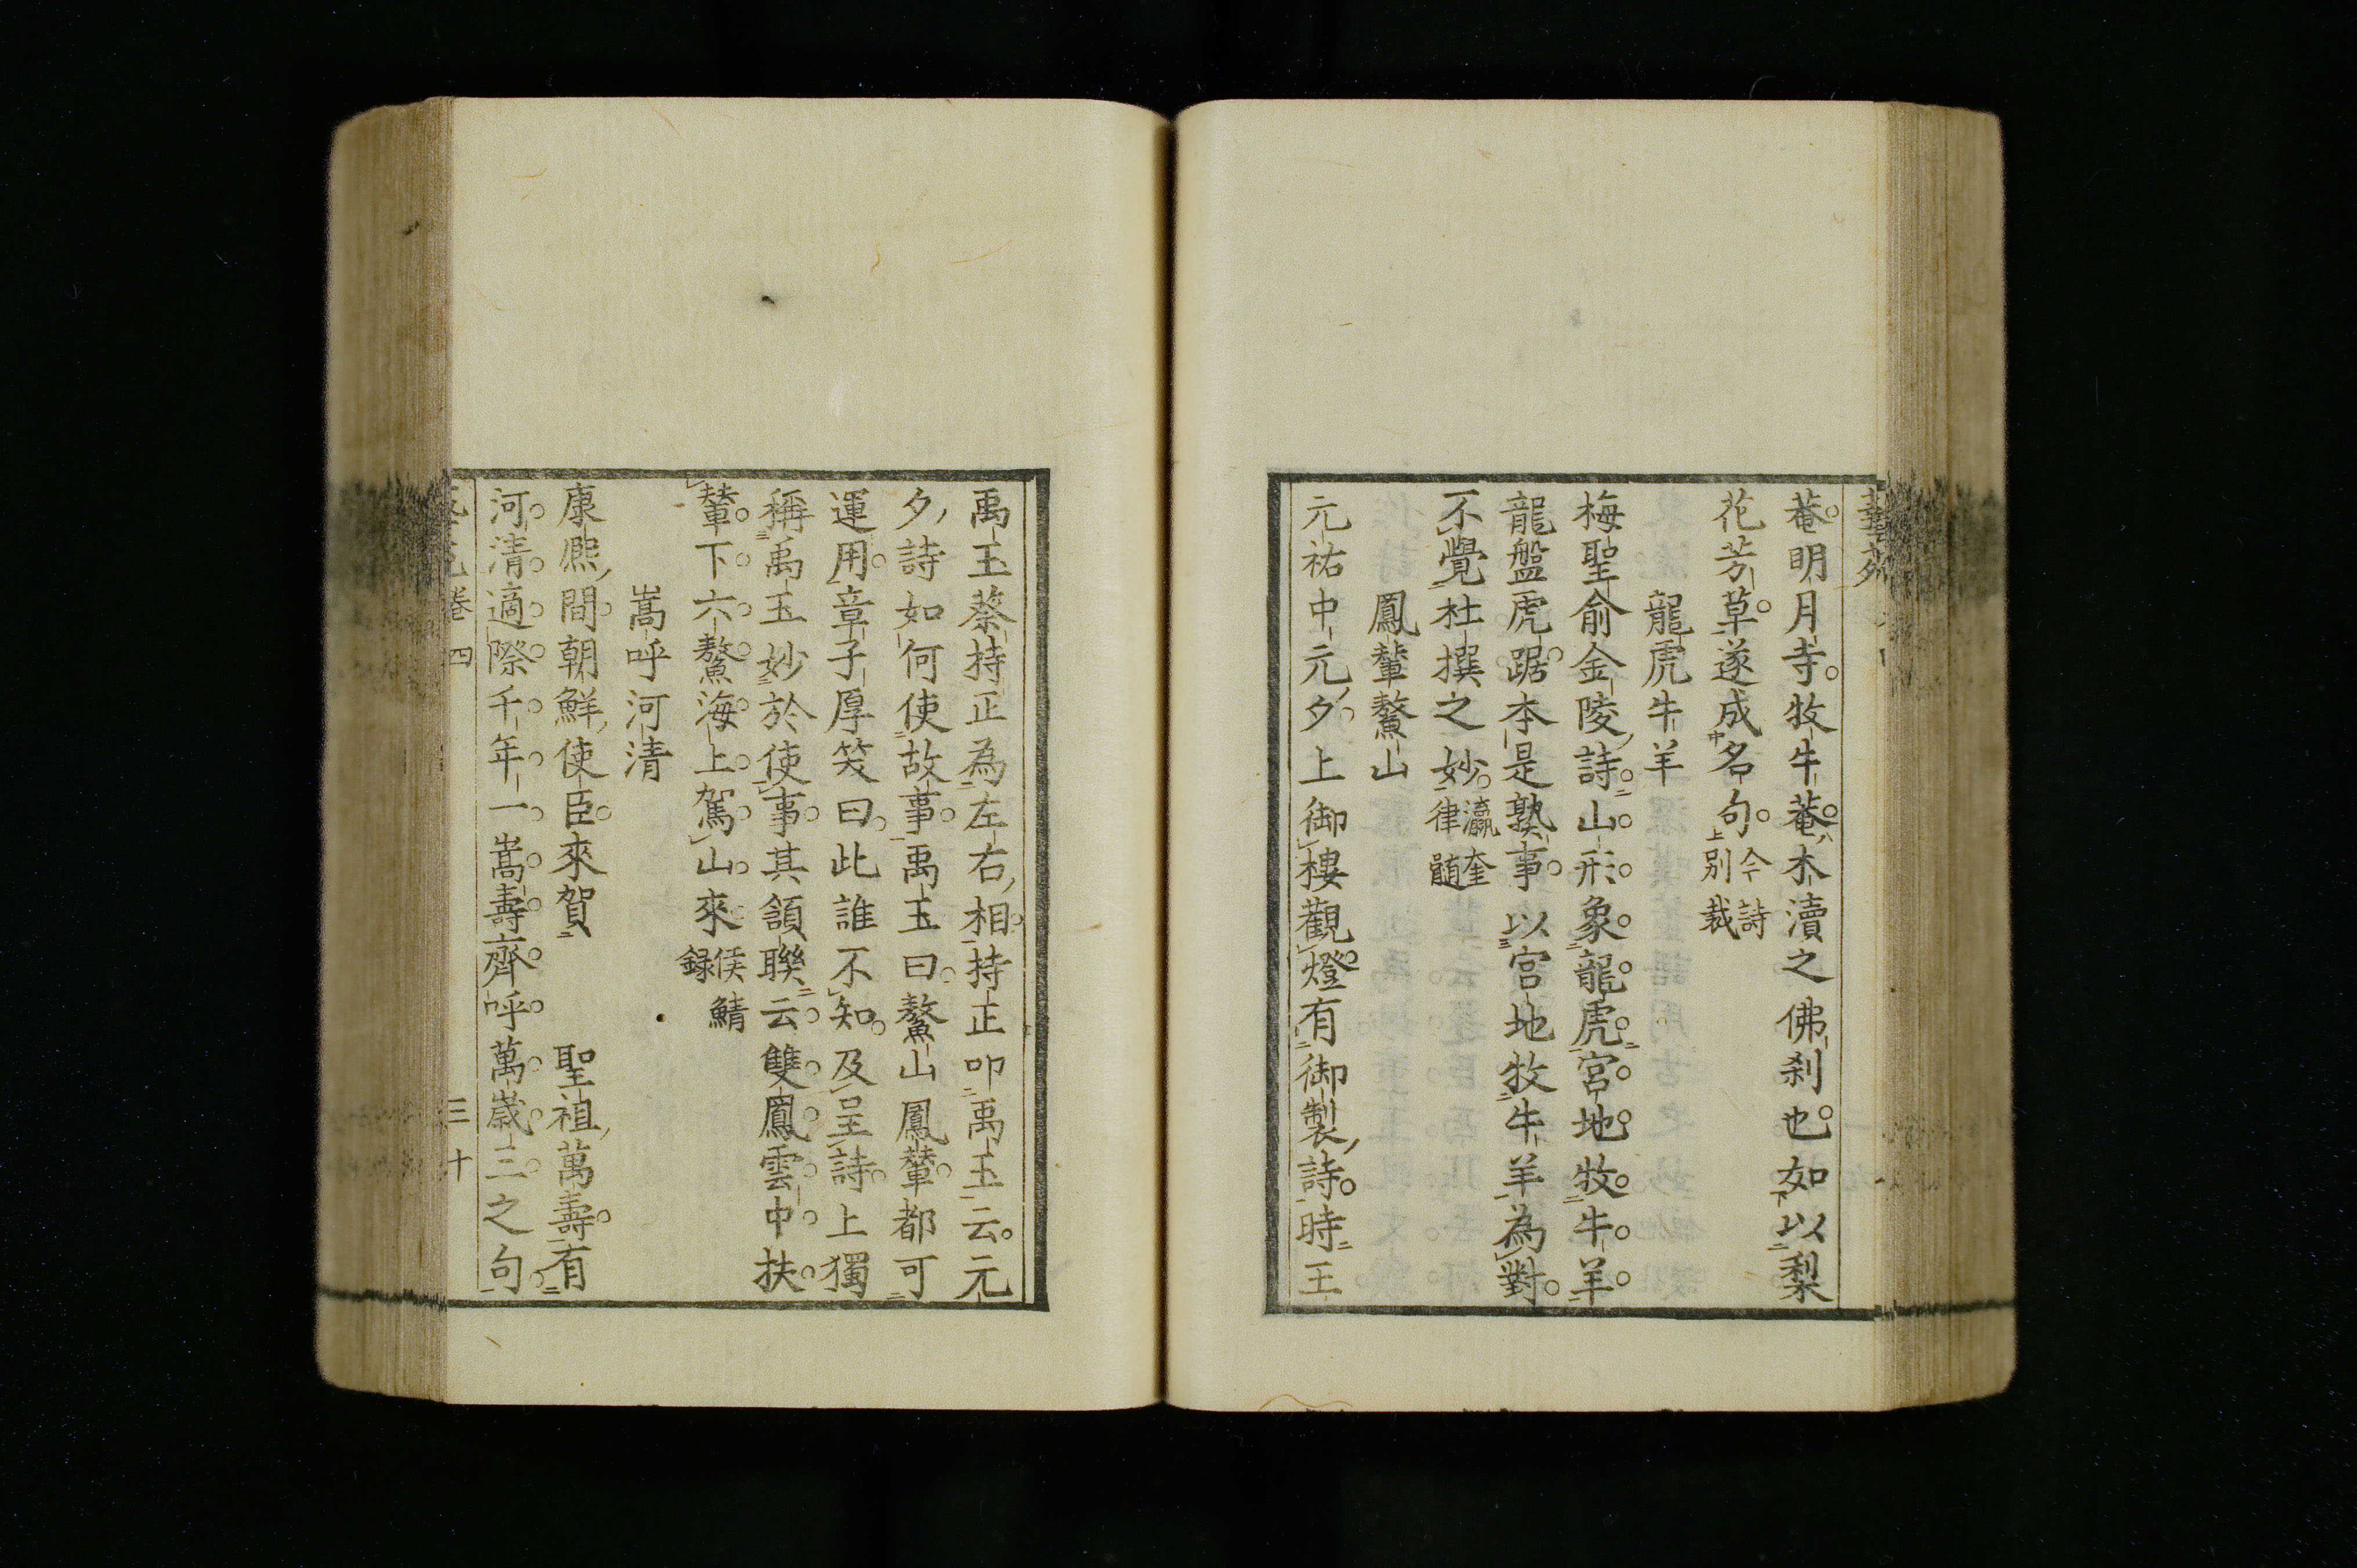 菴明月寺牧牛菴本瀆之佛刹也如以梨
花芳草遂成名句今詩別裁
龍虎牛羊
梅聖俞金陵詩山形象龍虎宮地牧牛羊
龍盤虎踞本是熟事以宮地牧牛羊為對
不覺杜撰之妙瀛奎律髓
鳳輦鰲山
元祐中元夕上御樓觀燈有御製詩時王
禹玉蔡持正為左右相持正叩禹玉云元
夕詩如何使故事禹玉曰鰲山鳳輦都可
運用章子厚笑曰此誰不知及呈詩上獨
稱禹玉妙於使事其頷聯云雙鳳雲中扶
輦下六鰲海上駕山來侯鯖錄
嵩呼河清
康熙間朝鮮使臣來賀 聖祖萬壽有
河清適際千年一嵩壽齊呼萬歲三之句
卷四 三十